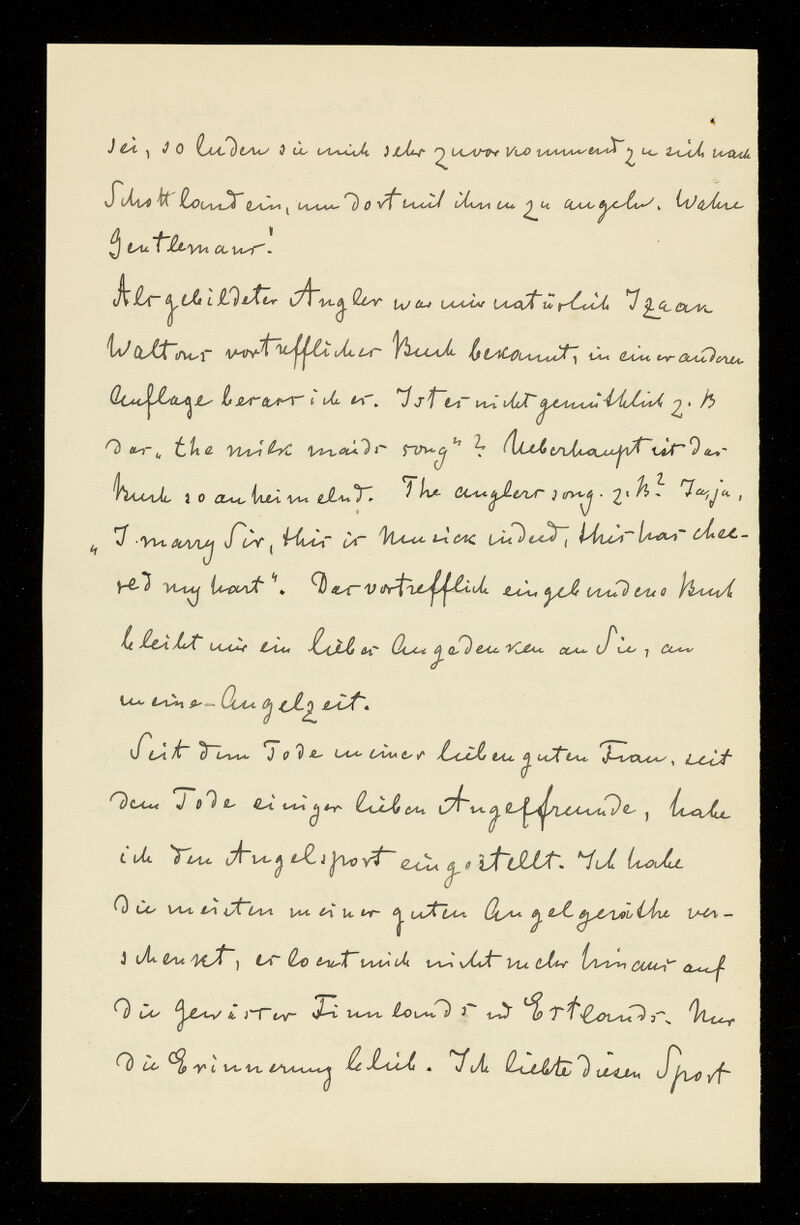 sei, so luden sie mich sehr zuvorkommend zu sich nach
Schottland ein, um dort mit ihnen zu angeln. Wahre
Gentlemans!
Als gebildeter Angler war mir natürlich Izaak
Waltons vortreffliches Buch bekannt, in einer anderen
Auflage besass ich es. Ist es nicht gemüthlich z. B
das „the milk maids song“? Ueberhaupt ist das
Buch so anheimelnd. The anglers song. z. B? Ja, ja,
„I marry Sir, this is Musick indeed, this has chee-
red my hart“. Das vortrefflich eingebundene Buch
bleibt mir ein liebes Angedenken an Sie, an
meine Angelzeit.
Seit dem Tode meiner lieben guten Frau, seit
dem Tode einiger lieben Angelfreunde, habe
ich den Angelsport eingestellt. Ich habe
die meisten meiner guten Angelgeräthe ver-
schenkt, es lockt mich nicht mehr hinaus auf
die Gewässer Finnlands ud Estlands. Nur
die Erinnerung blieb. Ich liebte diesen Sport